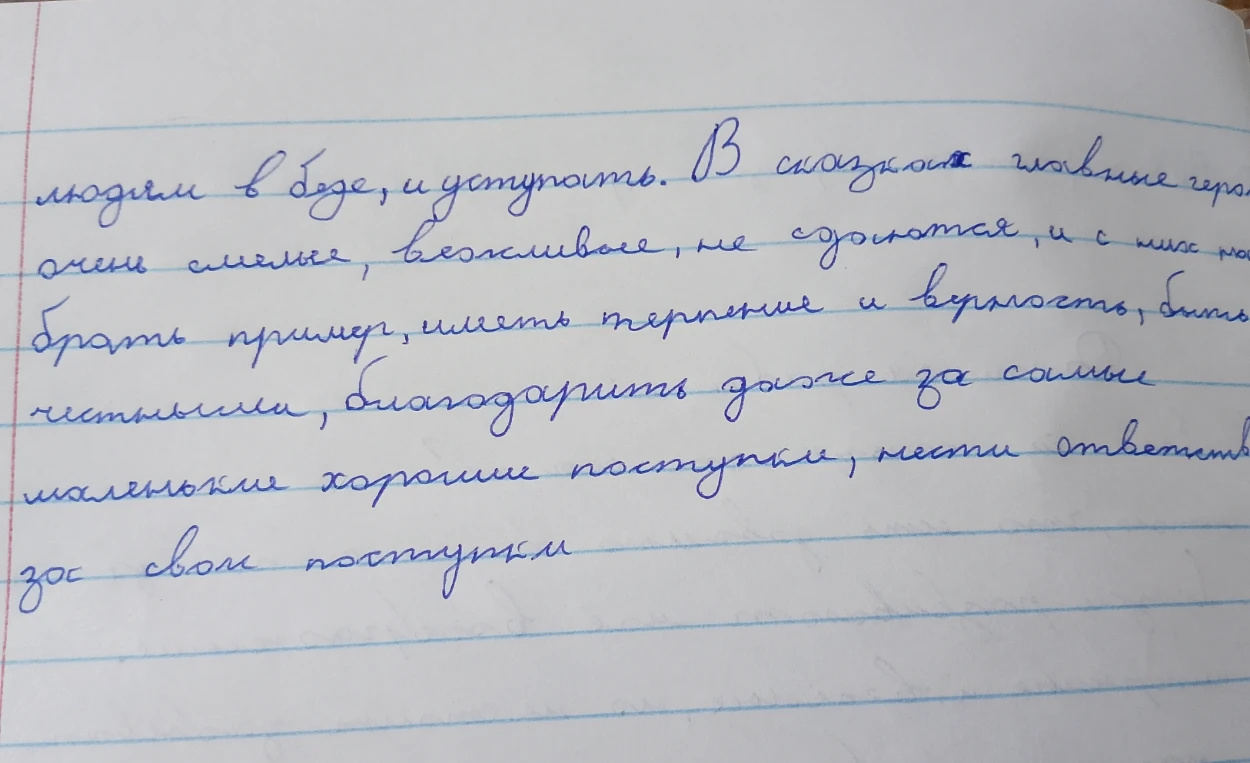 людям в беде, и уступать. В сказках главные геро
очень смелые, вежливые, не сдаются, и с них мо
брать пример, иметь терпение и верность, быть
честными, благодарить даже за самые
маленькие хорошие поступки, нести ответств
за свои поступки